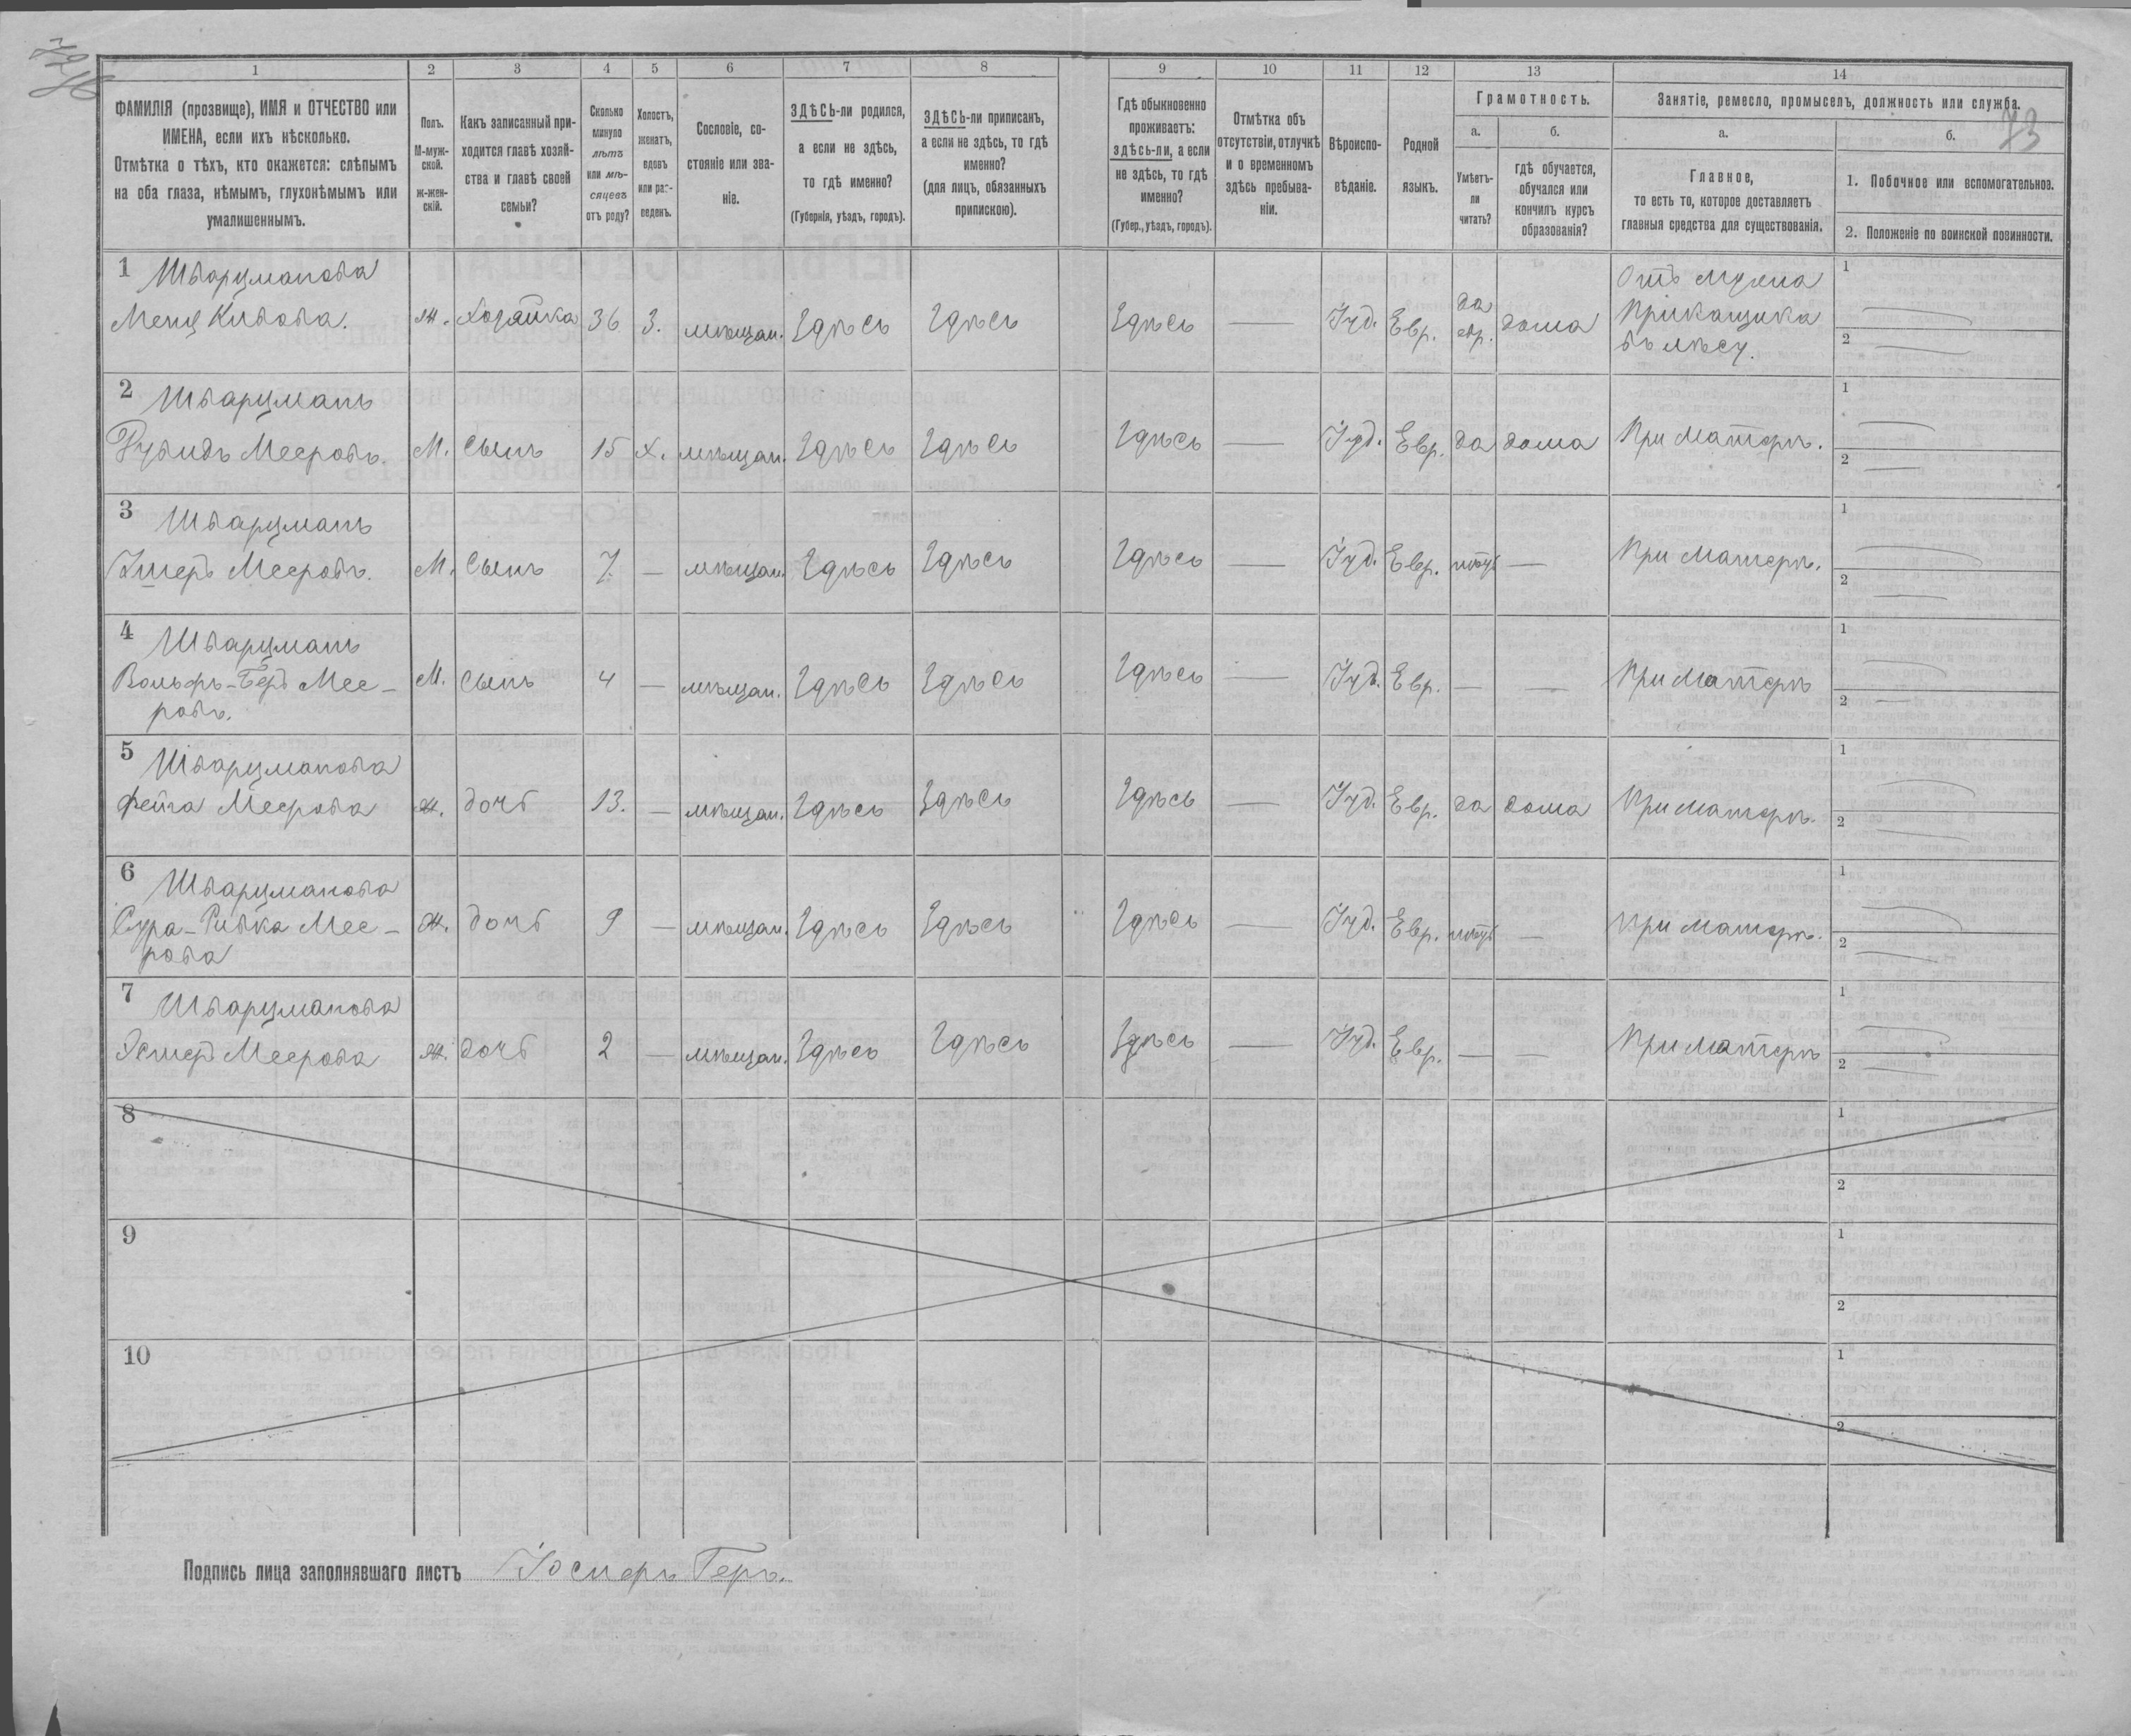 73
1 2 3 4 5 6 7 8 9 10 11 12 13 14
ФАМИЛІЯ (прозвище), ИМЯ и ОТЧЕСТВО или ИМЕНА, если ихъ нѣсколько.
Отмѣтка о тѣхъ, кто окажется: слѣпымъ на оба глаза, нѣмымъ, глухонѣмымъ или умалишеннымъ.
Полъ. М-мужской. ж-женскій.
Какъ записанный приходится главѣ хозяйства и главѣ своей семьи?
Сколько минуло лѣтъ или мѣсяцевъ отъ роду?
Холостъ, женатъ, вдовъ или разведенъ.
Сословіе, состояніе или званіе.
ЗДѢСЬ-ли родился, а если не здѣсь, то гдѣ именно?
(Губернія, уѣздъ, городъ).
ЗДѢСЬ-ли приписанъ, а если не здѣсь, то гдѣ именно?
(для лицъ, обязанныхъ припискою).
Гдѣ обыкновенно проживаетъ: здѣсь-ли, а если не здѣсь, то гдѣ именно?
(Губер., уѣздъ, городъ).
Отмѣтка объ отсутствіи, отлучкѣ и о временномъ здѣсь пребываніи.
Вѣроисповѣданіе.
Родной языкъ.
Грамотность.
а. б.
Умѣетъ-ли читать?
гдѣ обучается, обучался или кончилъ курсъ образованія?
Занятіе, ремесло, промыселъ, должность или служба.
а. б.
Главное,
то есть то, которое доставляетъ главныя средства для существованія.
1. Побочное или вспомогательное.
2. Положеніе по воинской повинности.
1 Шварцманова
Менц Кивова. ж. Хозяйка 36 З. мѣщан. Здѣсь Здѣсь Здѣсь — Іуд. Евр. да евр. дома Отъ мужа Прикащика въ лѣсу. 1 — 2 —
2 Шварцманъ
Рувидъ Мееровъ. М. Сынъ 15 Х. мѣщан. Здѣсь Здѣсь Здѣсь — Іуд. Евр. да дома При матерѣ. 1 — 2 —
3 Шварцманъ
Ушеръ Мееровъ. М. Сынъ 7. — мѣщан. Здѣсь Здѣсь Здѣсь — Іуд. Евр. нѣтъ — При матерѣ. 1 — 2 —
4 Шварцманъ
Вольфъ-Беръ Мее-
ровъ. М. Сынъ 4 — мѣщан. Здѣсь Здѣсь Здѣсь — Іуд. Евр. — — При матерѣ 1 — 2 —
5 Шварцманова
Фейга Меерова ж. дочь 13. — мѣщан. Здѣсь Здѣсь Здѣсь — Іуд. Евр. да дома При матерѣ. 1 — 2 —
6 Шварцманова
Сура-Ривка Мее-
рова ж. дочь 9 — мѣщан. Здѣсь Здѣсь Здѣсь — Іуд. Евр. нѣтъ — При матерѣ. 1 — 2 —
7 Шварцманова
Эстеръ Меерова ж. дочь 2 — мѣщан. Здѣсь Здѣсь Здѣсь — Іуд. Евр. — — При матерѣ 1 — 2 —
8 1 2
9 1 2
10 1 2
Подпись лица заполнявшаго листъ Геръ.